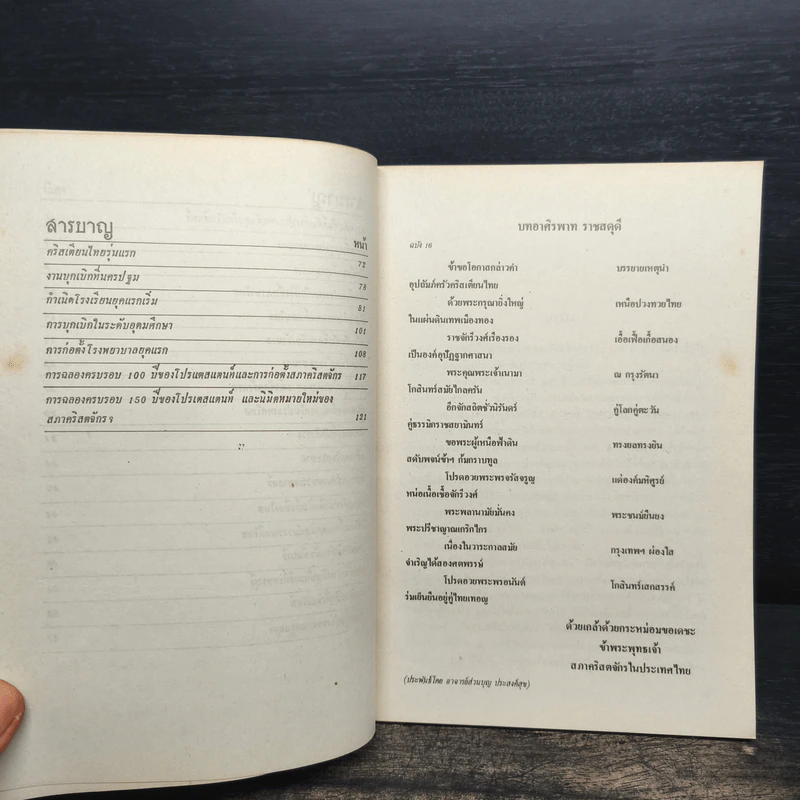 สารบาญ
หน้า
คริสเตียนไทยรุ่นแรก 72
งานบุกเบิกที่นครปฐม 78
กำเนิดโรงเรียนยุคแรกเริ่ม 81
การบุกเบิกในระดับอุดมศึกษา 101
การก่อตั้งโรงพยาบาลยุคแรก 108
การฉลองครบรอบ 100 ปีของโปรแตสแตนท์และการก่อตั้งสภาคริสตจักร 117
การฉลองครบรอบ 150 ปีของโปรเตสแตนท์ และนิมิตหมายใหม่ของ
สภาคริสตจักร ฯ 121
บทอาศิรพาท ราชสดุดี
ฉบัง 16
ข้าขอโอกาสกล่าวคำ บรรยายเหตุนำ
อุปถัมภ์ครัวคริสเตียนไทย
ด้วยพระกรุณายิ่งใหญ่ เหนือปวงทวยไทย
ในแผ่นดินเทพเมืองทอง
ราชจักรีวงศ์เรืองรอง เอื้อเฟื้อเกื้อสนอง
เป็นองค์อุปัฏฐากศาสนา
พระคุณพระเจ้าเนามา ณ กรุงรัตนา
โกสินทร์สมัยไกลครัน
อีกจักสถิตชั่วนิรันดร์ คู่โลกคู่ตะวัน
คู่ธรรมิกราชสยามินทร์
ขอพระผู้เหนือฟ้าดิน ทรงยลทรงยิน
สดับพจน์ข้าฯ ก้มกราบทูล
โปรดอวยพระพรจรัสจรูญ แด่องค์มหิศูรย์
หน่อเนื้อเชื้อจักรีวงศ์
พระพลานามัยมั่นคง พระชนม์ยืนยง
พระปรีชาญาณเกริกไกร
เนื่องในวาระกาลสมัย กรุงเทพฯ ผ่องใส
จำเริญได้สองศตพรรษ์
โปรดอวยพระพรอนันต์ โกสินทร์เสกสรรค์
ร่มเย็นยืนอยู่คู่ไทยเทอญ
ด้วยเกล้าด้วยกระหม่อมขอเดชะ
ข้าพระพุทธเจ้า
สภาคริสตจักรในประเทศไทย
(ประพันธ์โดย อาจารย์ส่วนบุญ ประสงค์สุข)